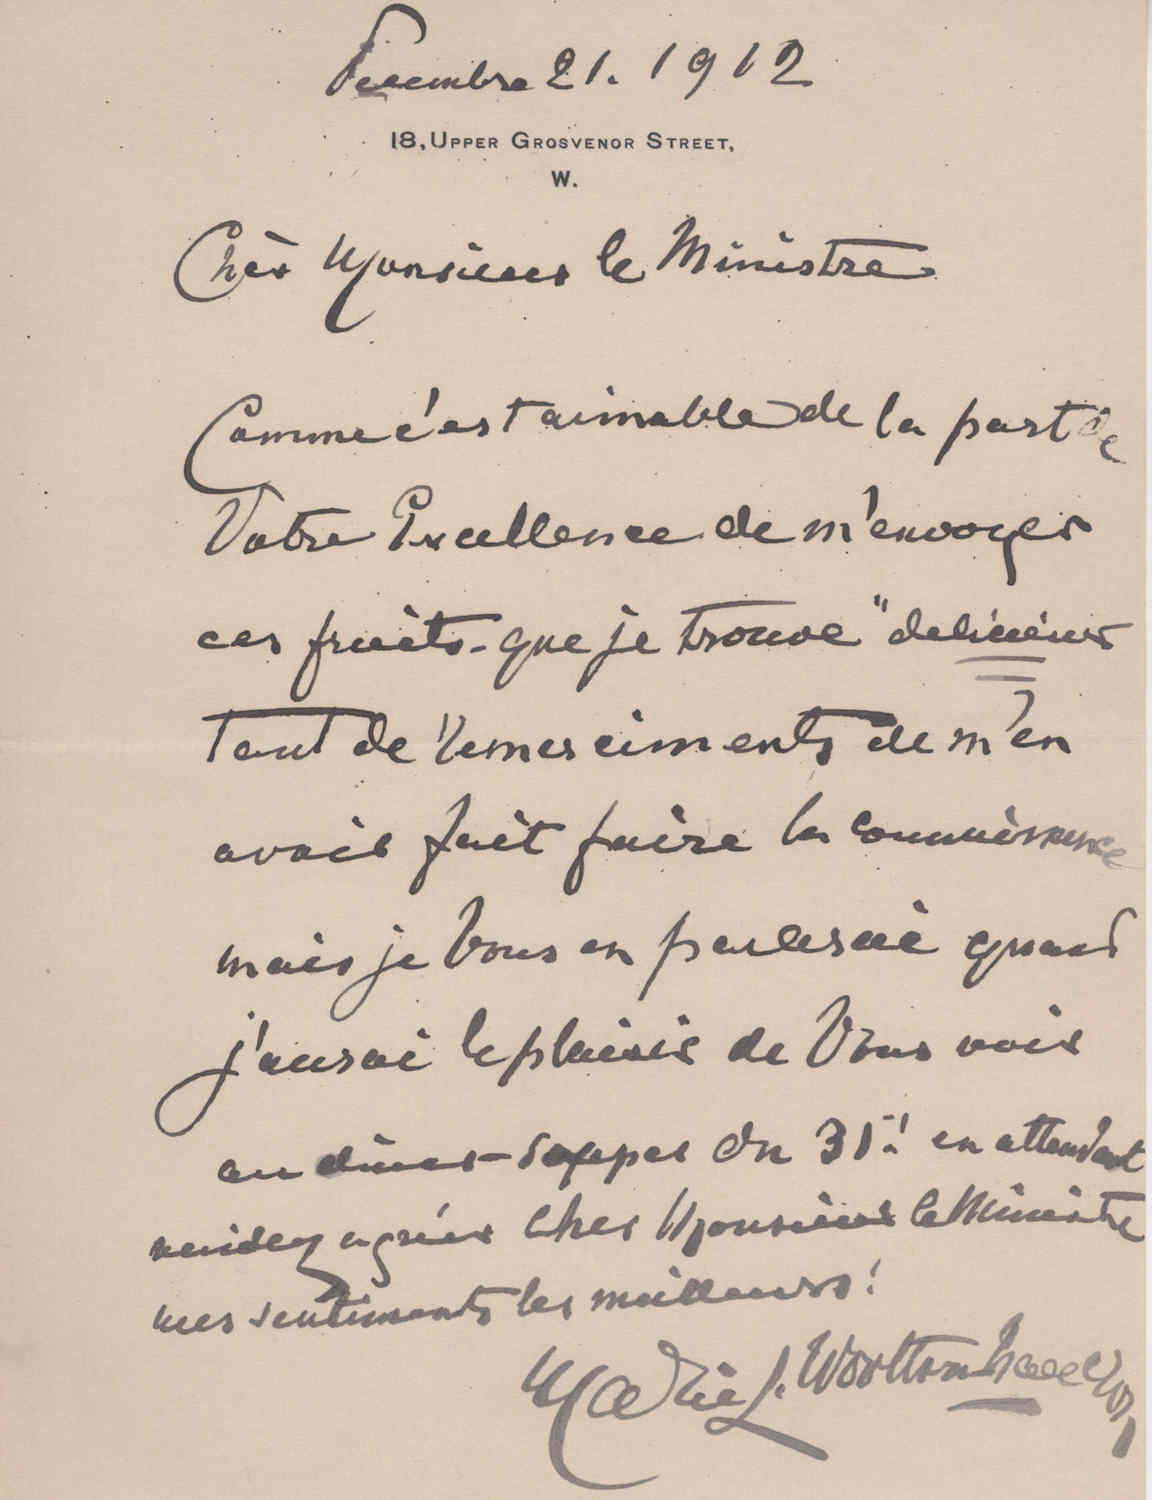 Decembre 21. 1912
18, UPPER GROSVENOR STREET,
W.
Chèr Monsieur le Ministre
Comme c'est aimable de la part de
Votre Excellence de m'envoyer
ces fruits - que je trouve "delicieux
Tant de remerciments de m'en
avoir fait faire la connaissance
mais je Vous en parlerai quand
j'aurai le plaisir de Vous voir
au diner - souper du 31.! en attendant
agréer cher Monsieur le Ministre
mes sentiments les meilleurs!
Marie L. Wootton Isaacson